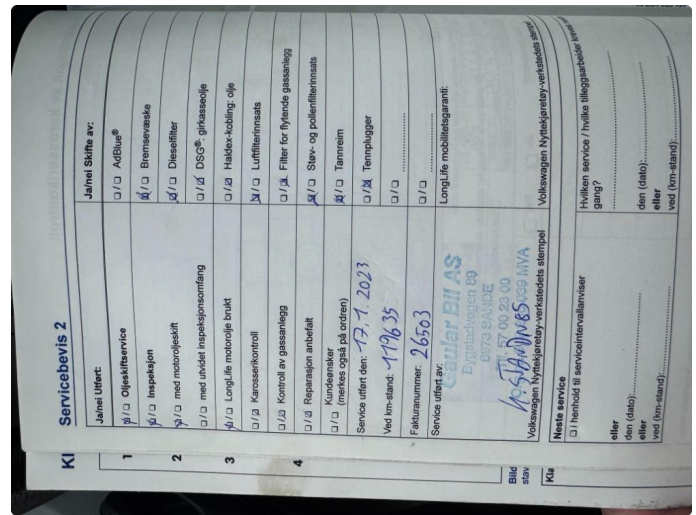 KI
Servicebevis 2
Ja/nei Utført:
1
☒/☐ Oljeskiftservice
☒/☐ Inspeksjon
2
☒/☐ med motoroljeskift
☐/☐ med utvidet inspeksjonsomfang
3
☒/☐ LongLife motorolje brukt
☐/☒ Karosserikontroll
☐/☒ Kontroll av gassanlegg
4
☐/☒ Reparasjon anbefalt
☐/☐ Kundeønsker
(merkes også på ordren)
Service utført den: 17.1.2023
Ved km-stand: 119635
Fakturanummer: 26503
Service utført av:
Gaular Bil AS
Bygstadvegen 80
6973 SANDE
57 00 23 00
MVA
Volkswagen Nyttekjøretøy-verkstedets stempel
Ja/nei Skifte av:
☐/☐ AdBlue®
☒/☐ Bremsevæske
☒/☐ Dieselfilter
☐/☒ DSG®: girkasseolje
☐/☒ Haldex-kobling: olje
☒/☐ Luftfilterinnsats
☐/☒ Filter for flytende gassanlegg
☒/☐ Støv- og pollenfilterinnsats
☒/☐ Tannreim
☐/☒ Tennplugger
☐/☐ ....................
☐/☐ ....................
LongLife mobilitetsgaranti:
Volkswagen Nyttekjøretøy-verkstedets stempel
Neste service
☐ I henhold til serviceintervallanviser
eller
den (dato):....................
eller
ved (km-stand):....................
Hvilken service / hvilke tilleggsarbeider
gang?
....................
den (dato):....................
eller
ved (km-stand):....................
Bild
stav
Kla